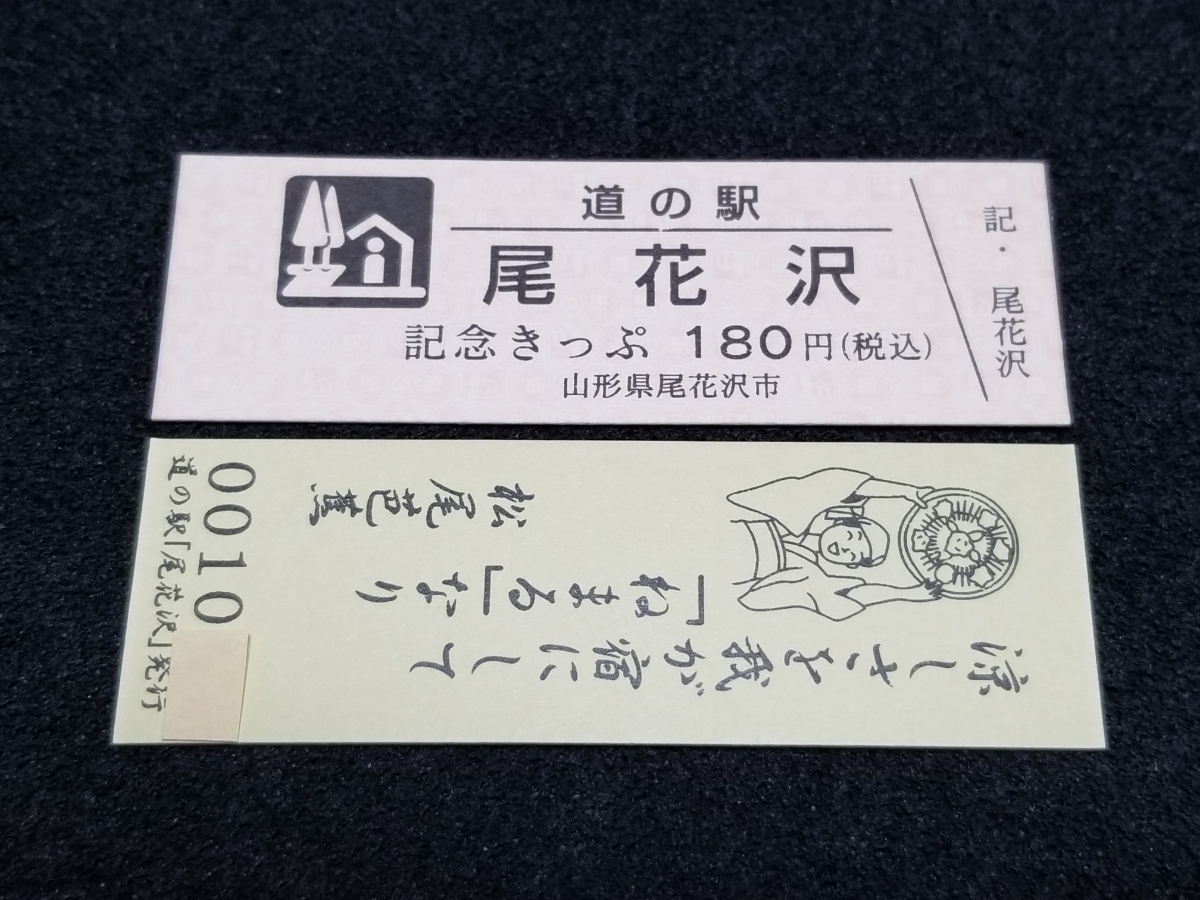 道の駅
尾花沢
記念きっぷ 180円(税込)
山形県尾花沢市
記・尾花沢
涼しさを我が宿にして
「ねまる」なり
松尾芭蕉
0010
道の駅「尾花沢」発行